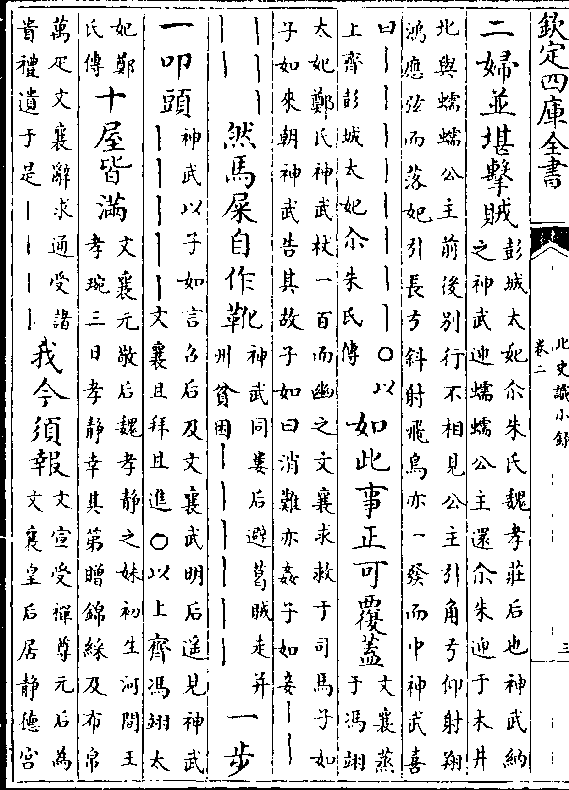 欽定四庫全書
北史識小錄
卷二
三
二婦並堪擊賊
彭城太妃尒朱氏魏孝莊后也神武納
之神武迎蠕蠕公主還尒朱迎于木井
北與蠕蠕公主前後別行不相見公主引角弓仰射翔
鴻應弦而落妃引長弓斜射飛鳥亦一發而中神武喜
曰｜｜｜｜｜｜○以
上齊彭城太妃尒朱氏傳
如此事正可覆蓋
文襄蒸
于馮翊
太妃鄭氏神武杖一百而幽之文襄求救于司馬子如
子如來朝神武告其故子如曰消難亦姦子如妾｜｜
｜｜｜
｜｜
然馬屎自作靴
神武同婁后避葛賊走并
州貧困｜｜｜｜｜｜
一步
一叩頭
神武以子如言召后及文襄武明后遙見神武
｜｜｜｜｜文襄且拜且進○以上齊馮翊太
妃鄭
氏傳
十屋皆滿
文襄元敬后魏孝靜之妹初生河間王
孝琬三日孝靜幸其第贈錦綵及布帛
萬疋文襄辭求通受諸
貴禮遺于是｜｜｜｜
我今須報
文宣受禪尊元后為
文襄皇后居靜德宮